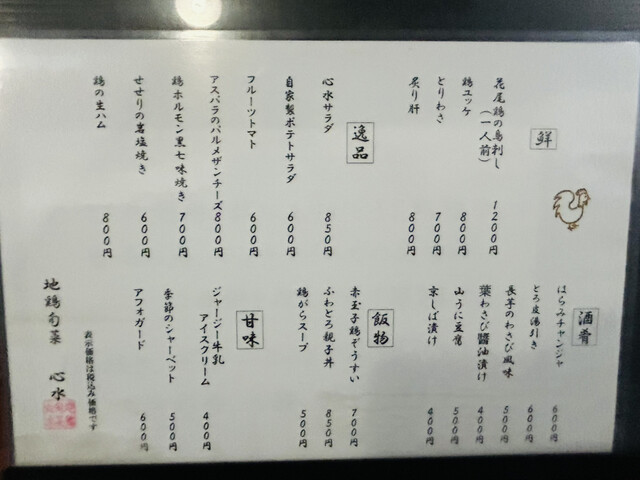 鮮
花尾鶏の鳥刺し
(一人前) 1200円
鶏ユッケ 800円
とりわさ 700円
炙り肝 800円
逸品
心水サラダ 850円
自家製ポテトサラダ 600円
フルーツトマト 600円
アスパラのパルメザンチーズ 800円
鶏ホルモン黒七味焼き 700円
せせりの岩塩焼き 600円
鶏の生ハム 800円
酒肴
はらみチャンジャ 600円
とろ皮湯引き 600円
長芋のわさび風味 500円
葉わさび醤油漬け 400円
山うに豆腐 500円
京しば漬け 400円
飯物
赤玉子鶏ぞうすい 700円
ふわとろ親子丼 850円
鶏がらスープ 500円
甘味
ジャージー牛乳
アイスクリーム 400円
季節のシャーベット 500円
アフォガード 600円
表示価格は税込み価格です
地鶏旬菜 心水